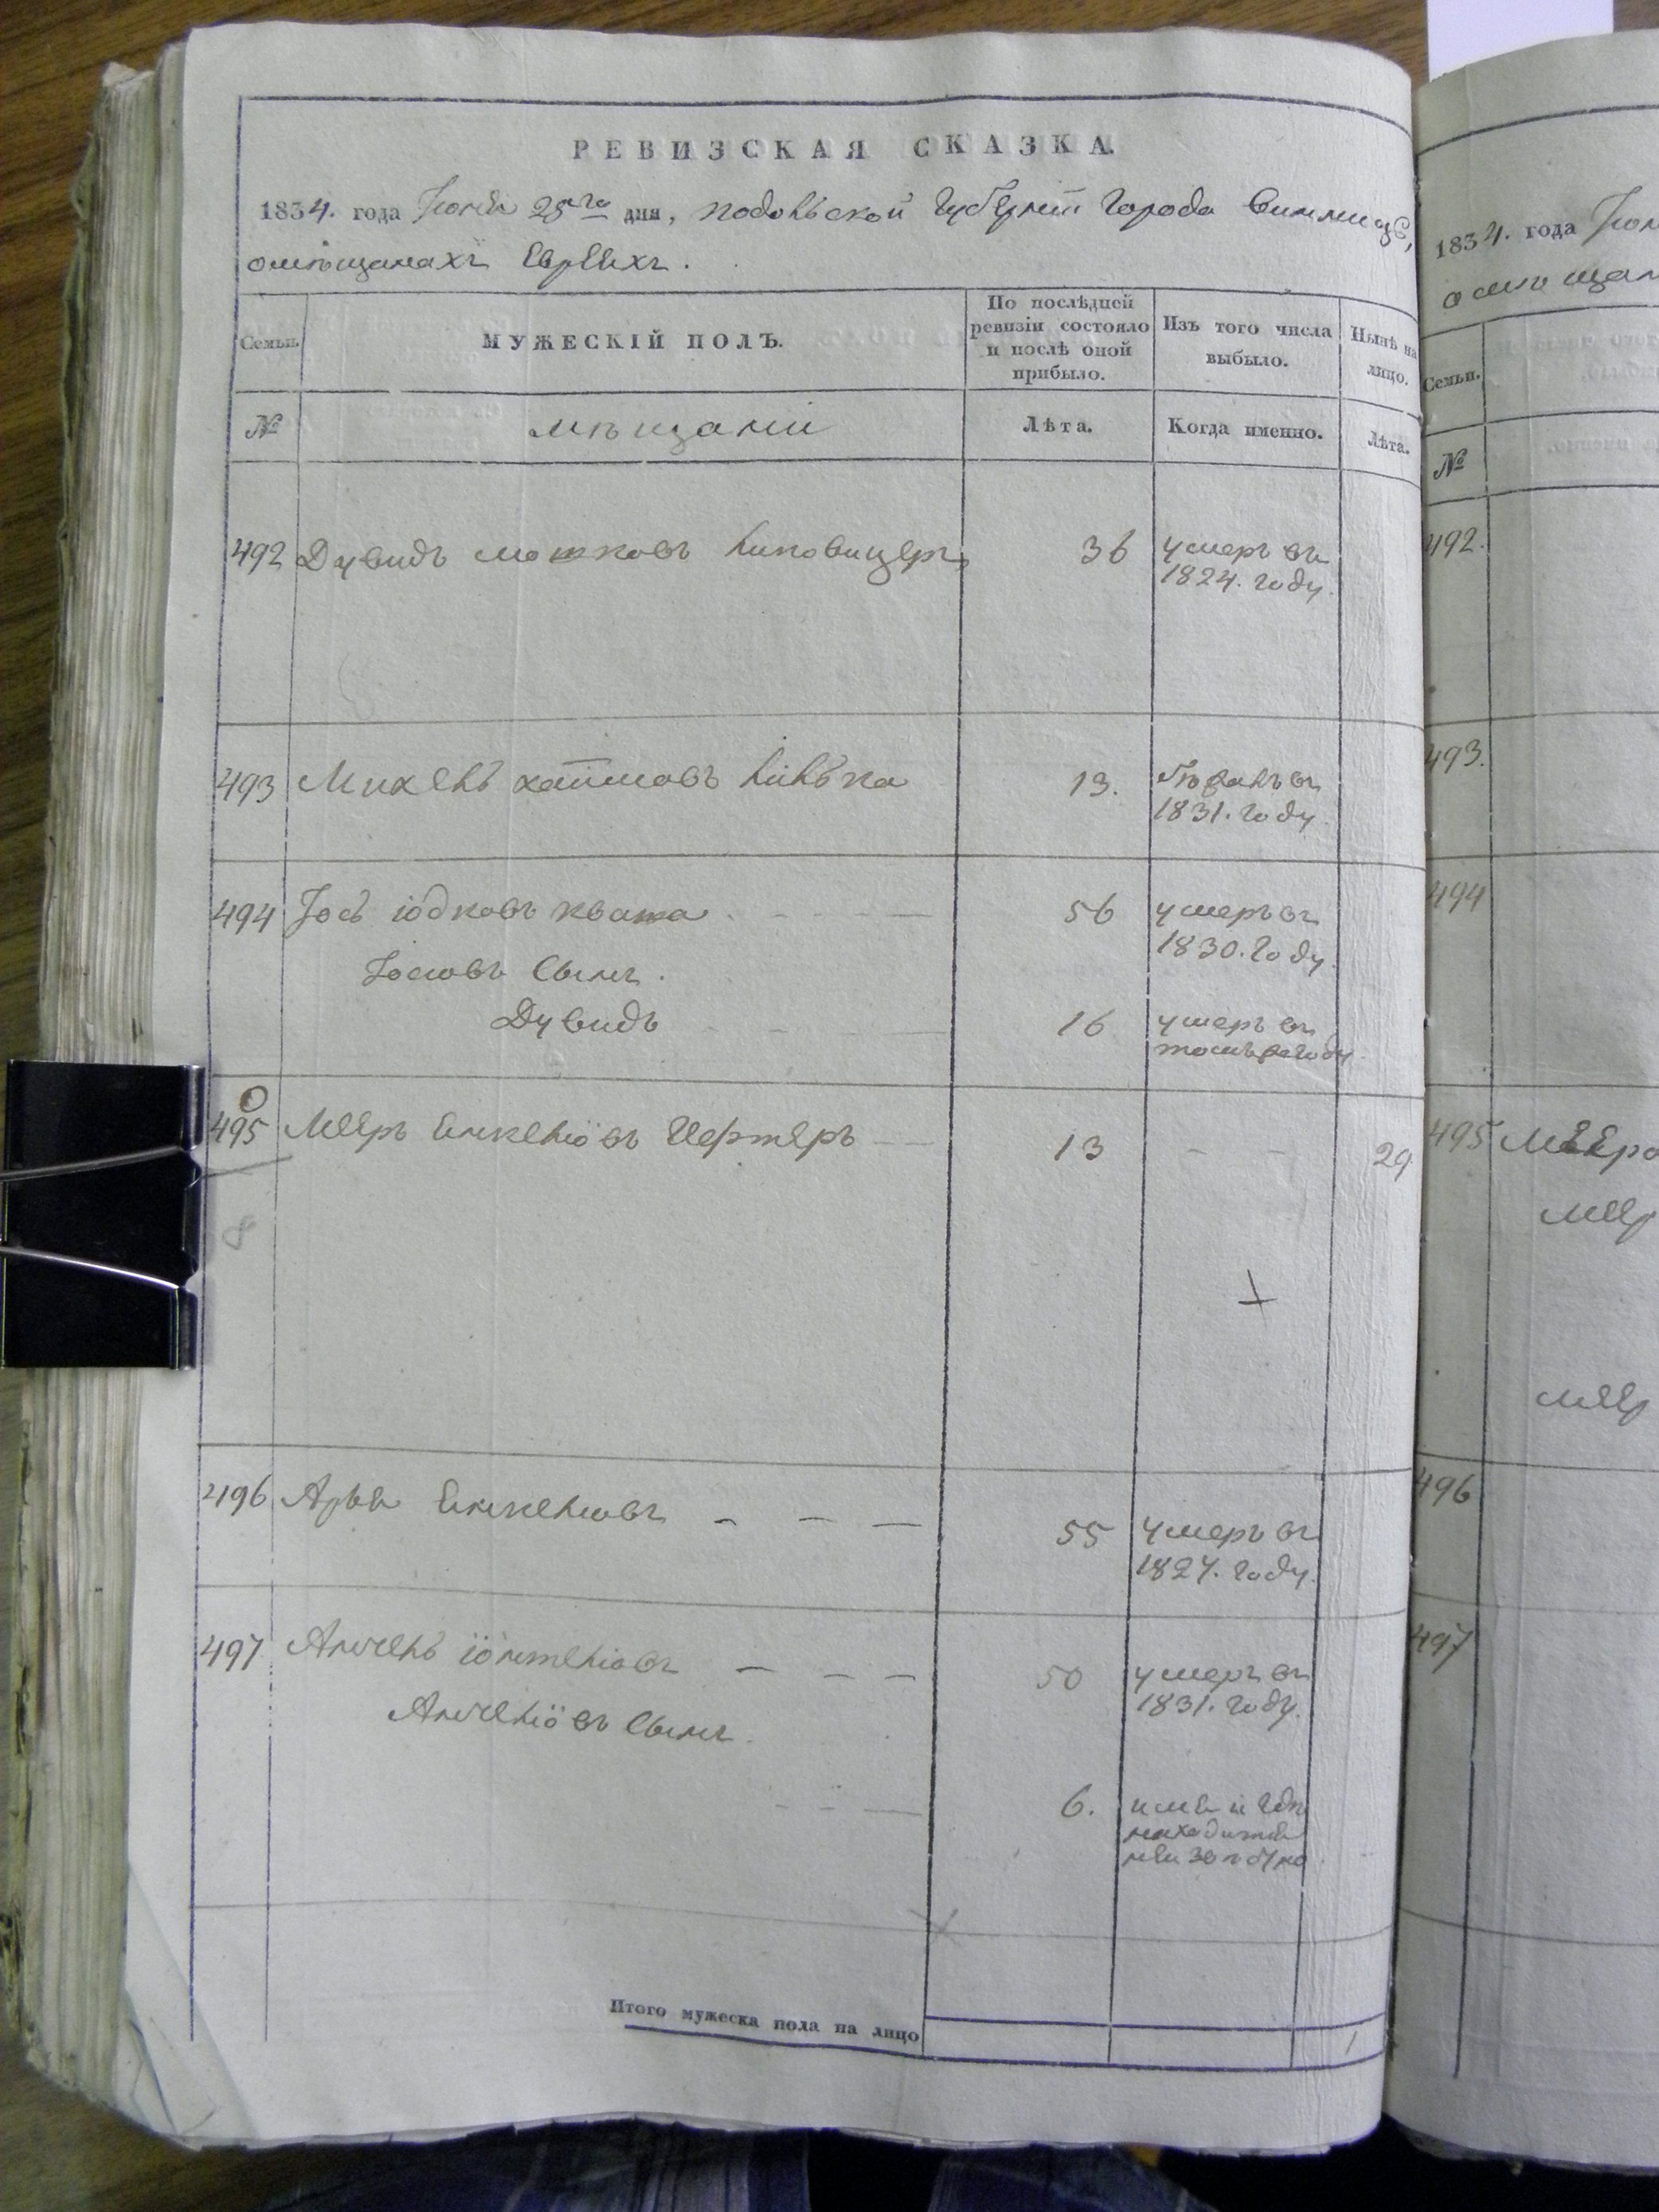 РЕВИЗСКАЯ СКАЗКА.
1834. года Июня 25го дня, Подольской Губерніи Города Винницы,
о мѣщанахъ Евреяхъ.
Семьи.
МУЖЕСКІЙ ПОЛЪ.
По послѣдней ревизіи состояло и послѣ оной прибыло.
Изъ того числа выбыло.
Нынѣ на лицо.
№
мѣщане
Лѣта.
Когда именно.
Лѣта.
492 Дувидъ Мошковъ Липовицеръ 36 умеръ въ
1824. году.
493 Михель Хаимовъ 13. бѣжалъ въ
1831. году.
494 Іось Іодковъ Кваша 56 умеръ въ
1830. году.
Іосiовъ Сынъ.
Дувидъ 16 умеръ въ
томъ же году
495 Меръ Янкеліовъ 13 - - 29
8
496 Арья Янкеліовъ 55 умеръ въ
1827. году.
497 Анчель Іонтеліовъ 50 умеръ въ
1831. году.
Анчеліовъ Сынъ.
6.
Итого мужеска пола на лицо 1
1834. года
Семьи.
№
492.
493.
494
495
496
497